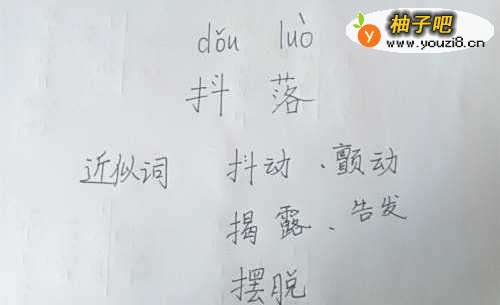 柚子吧
www.youzi8.cn
dǒu luò
抖 落
近似词 抖动、颤动
揭露、告发
摆脱